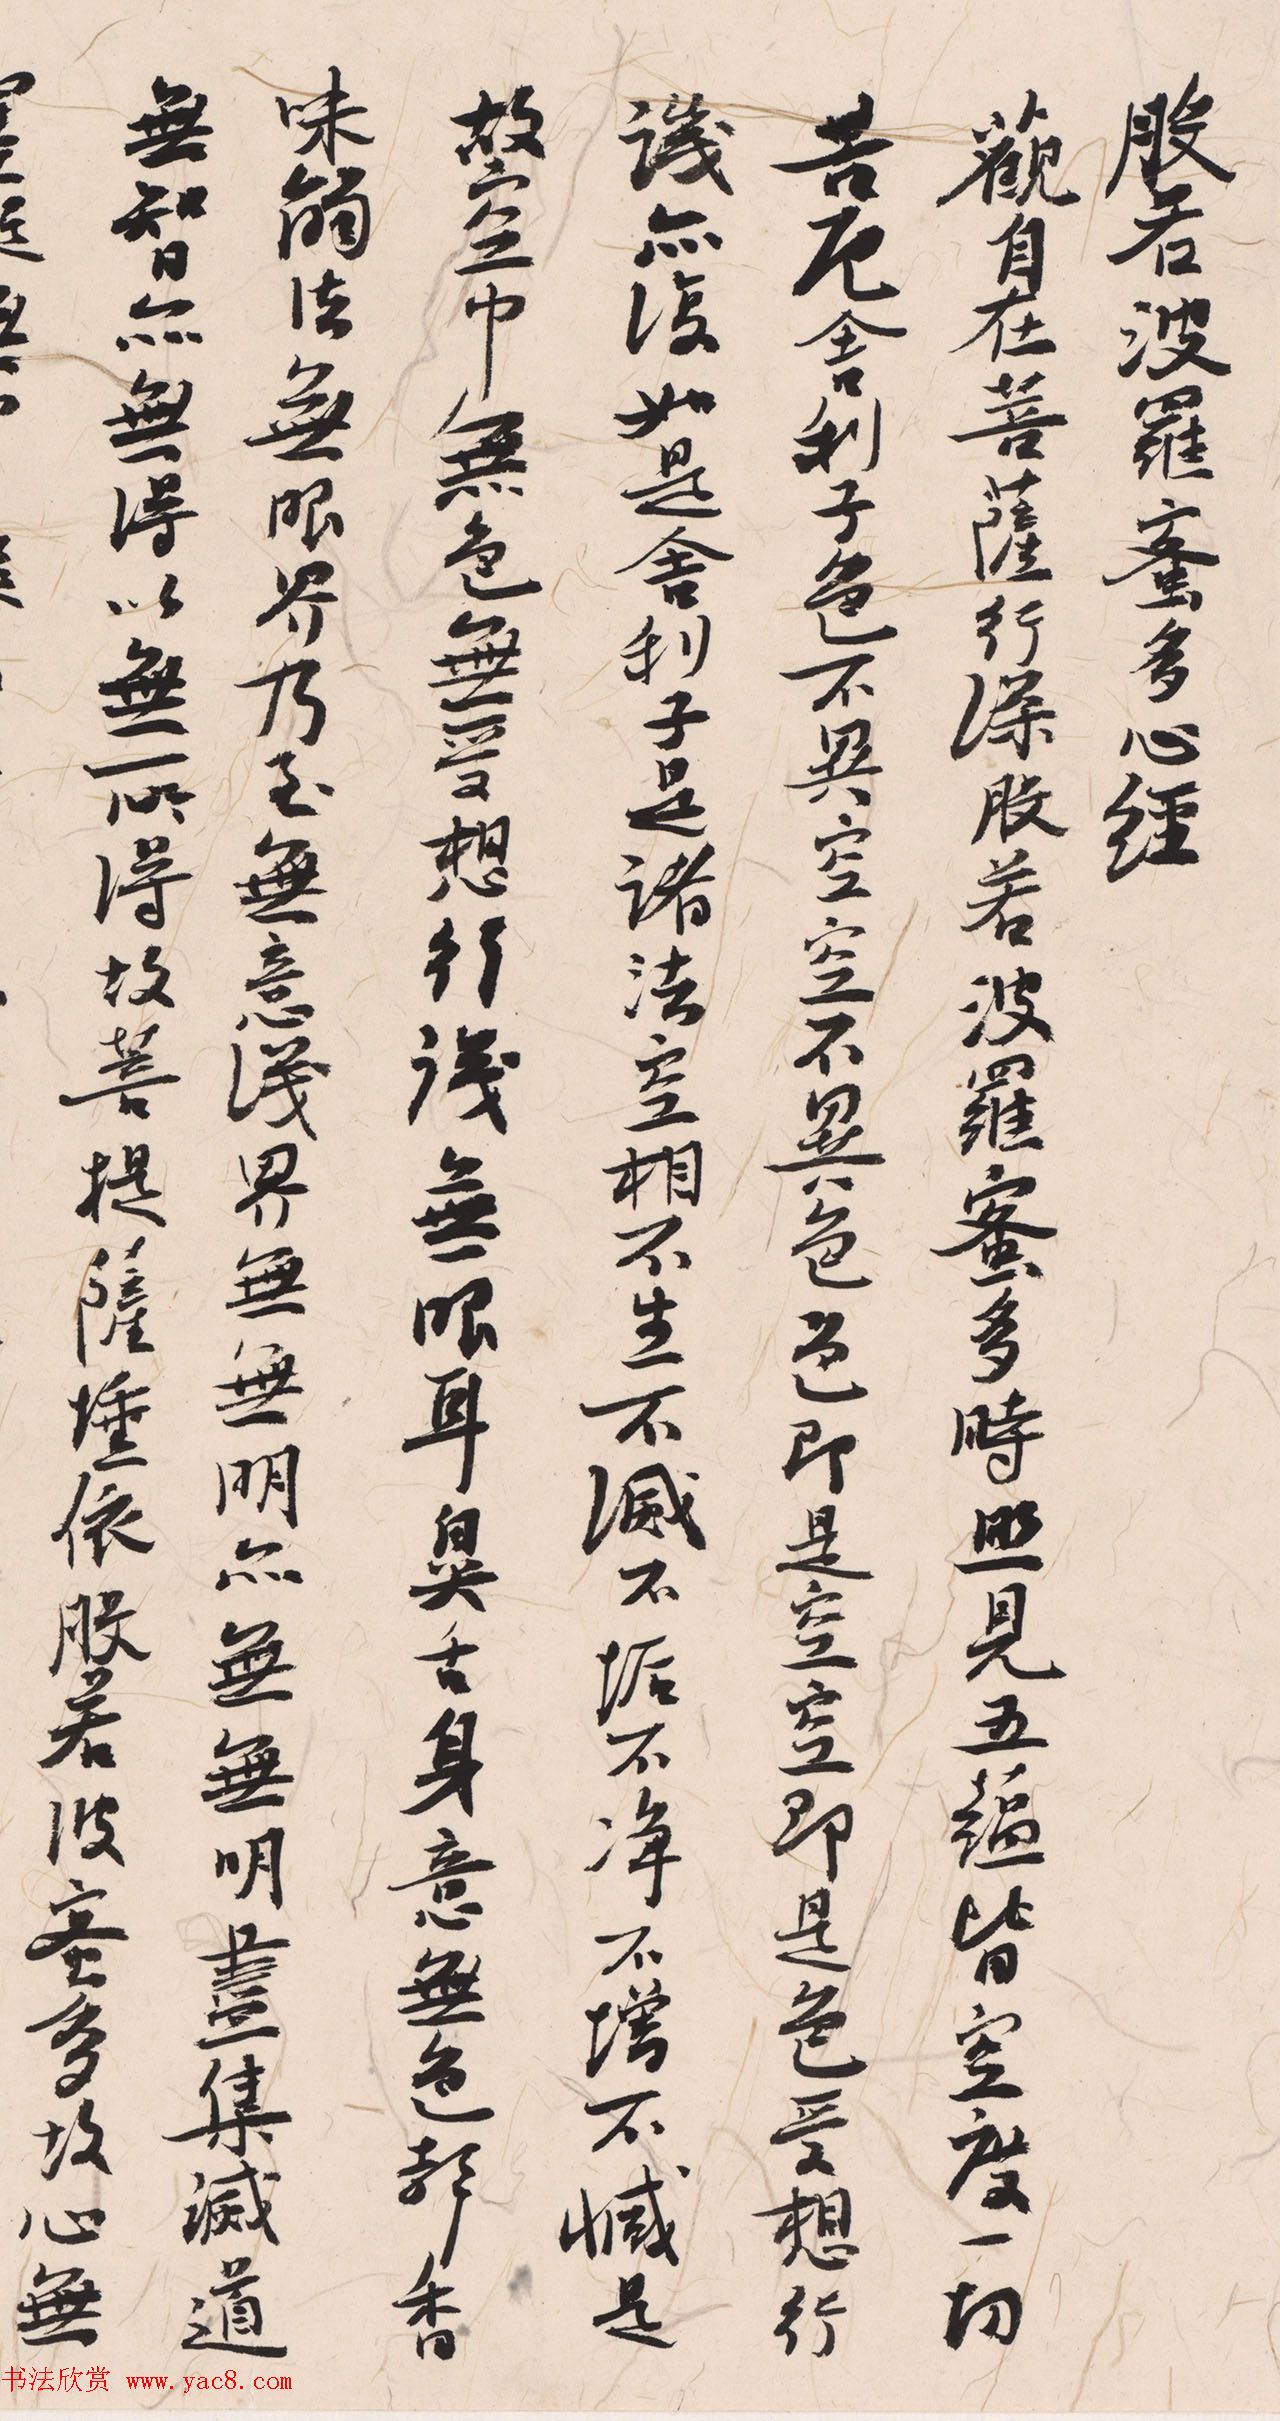 般若波羅蜜多心經
觀自在菩薩行深般若波羅蜜多時照見五蘊皆空度一切
苦厄舍利子色不異空空不異色色即是空空即是色受想行
識亦復如是舍利子是諸法空相不生不滅不垢不净不增不減是
故空中無色無受想行識無眼耳鼻舌身意無色聲香
味觸法無眼界乃至無意識界無無明亦無無明盡集滅道
無智亦無得以無所得故菩提薩埵依般若波蜜多故心無
书法欣赏 www.yac8.com